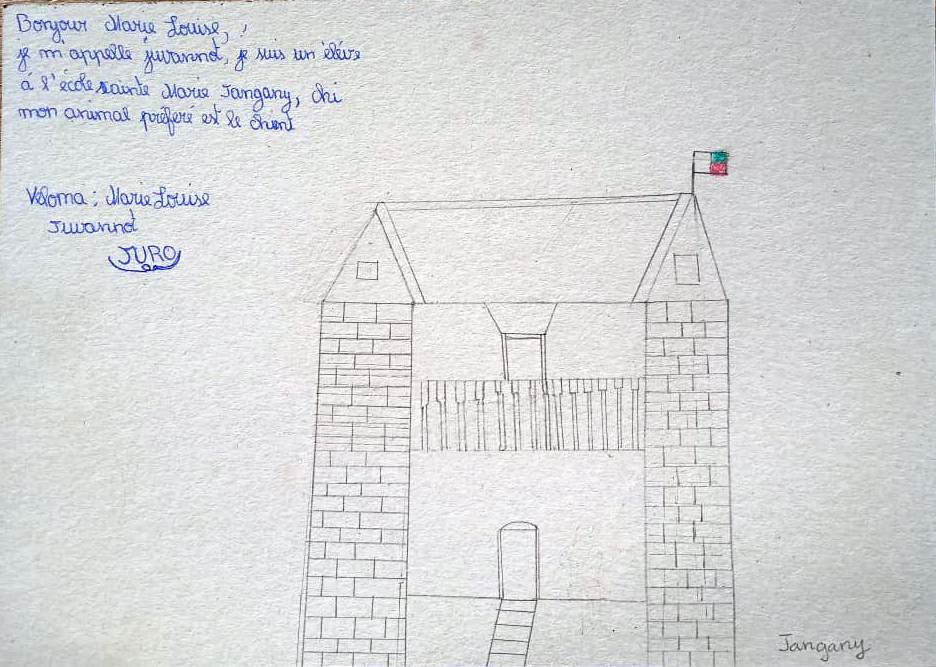 Bonjour Marie Louise,
je m'appelle juvannot, je suis un élève
á l'école sainte Marie Jangany,
mon animal préferé est le chient
Veloma : Marie Louise
Juvannot
JURO
Jangany